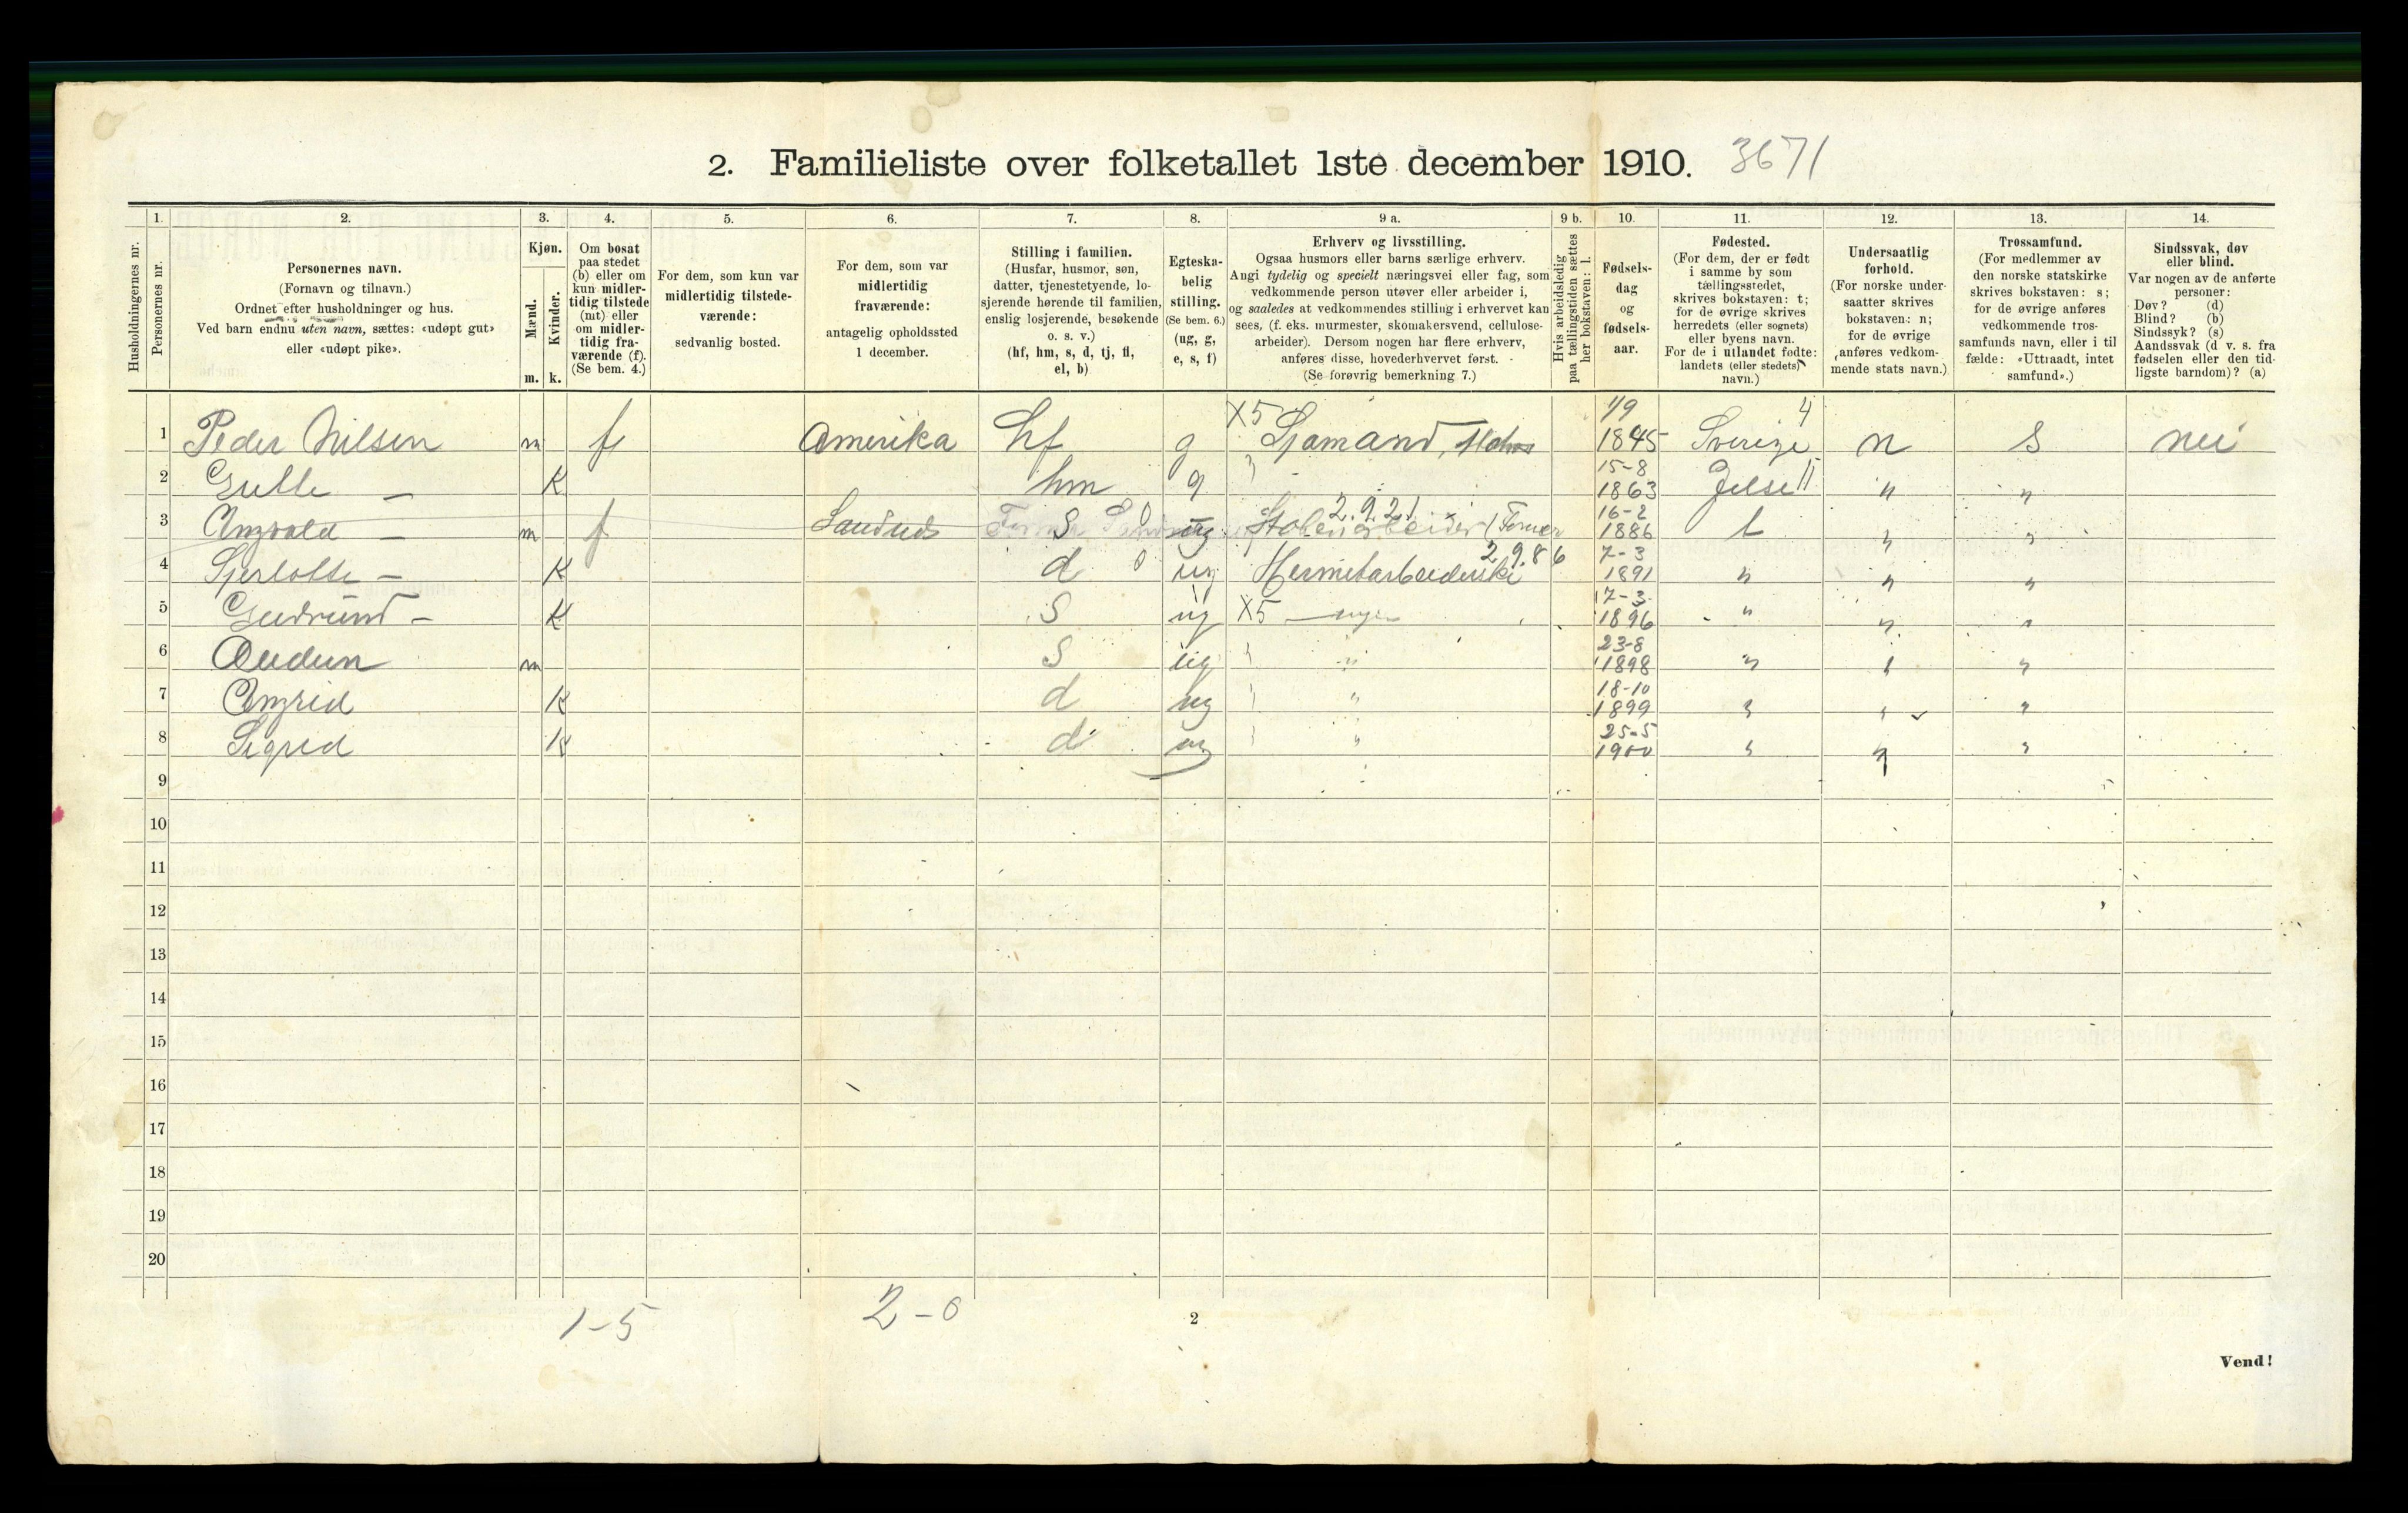 2. Familieliste over folketallet 1ste december 1910. 3671
1. 2. 3. 4. 5. 6. 7. 8. 9 a. 9 b. 10. 11. 12. 13. 14.
Husholdningernes nr.
Personernes nr.
Personernes navn.
(Fornavn og tilnavn.)
Ordnet efter husholdninger og hus.
Ved barn endnu uten navn, sættes: «udøpt gut»
eller «udøpt pike».
Kjøn.
Mænd.
Kvinder.
m. k.
Om bosat
paa stedet
(b) eller om
kun midler-
tidig tilstede
(mt) eller
om midler-
tidig fra-
værende (f).
(Se bem. 4.)
For dem, som kun var
midlertidig tilstede-
værende:
sedvanlig bosted.
For dem, som var
midlertidig
fraværende:
antagelig opholdssted
1 december.
Stilling i familien.
(Husfar, husmor, søn,
datter, tjenestetyende, lo-
sjerende hørende til familien,
enslig losjerende, besøkende
o. s. v.)
(hf, hm, s, d, tj, fl,
el, b)
Egteska-
belig
stilling.
(Se bem. 6.)
(ug, g,
e, s, f)
Erhverv og livsstilling.
Ogsaa husmors eller barns særlige erhverv.
Angi tydelig og specielt næringsvei eller fag, som
vedkommende person utøver eller arbeider i,
og saaledes at vedkommendes stilling i erhvervet kan
sees, (f. eks. murmester, skomakersvend, cellulose-
arbeider). Dersom nogen har flere erhverv,
anføres disse, hovederhvervet først.
(Se forøvrig bemerkning 7.)
Hvis arbeidsledig
paa tællingstiden sættes
her bokstaven: l.
Fødsels-
dag
og
fødsels-
aar.
Fødested.
(For dem, der er født
i samme by som
tællingsstedet,
skrives bokstaven: t;
for de øvrige skrives
herredets (eller sognets)
eller byens navn.
For de i utlandet fødte:
landets (eller stedets)
navn.)
Undersaatlig
forhold.
(For norske under-
saatter skrives
bokstaven: n;
for de øvrige
anføres vedkom-
mende stats navn.)
Trossamfund.
(For medlemmer av
den norske statskirke
skrives bokstaven: s;
for de øvrige anføres
vedkommende tros-
samfunds navn, eller i til
fælde: «Uttraadt, intet
samfund».)
Sindssvak, døv
eller blind.
Var nogen av de anførte
personer:
Døv? (d)
Blind? (b)
Sindssyk? (s)
Aandssvak (d v. s. fra
fødselen eller den tid-
ligste barndom)? (a)
X5 1/9 4
1 Peder Nilsen m f Amerika hf g Sjømand, 1845 Sverige n s nei
15-8
2 k hm g 1863 Jelse 11 " "
2.9.21 16-2
3 m f s ug 1886 t " "
2.9.86 7-3
4 — k d ug 1891 " " "
17-3
5 Gudrund — k s ug X5 1896 " " "
23-8
6 Audun m s ug " 1898 " " "
18-10
7 Ingrid k d ug " 1899 " " "
25-5
8 Sigrid k d ug " 1900 " " "
9
10
11
12
13
14
15
16
17
18
19
20
1-5 2-0 2
Vend!